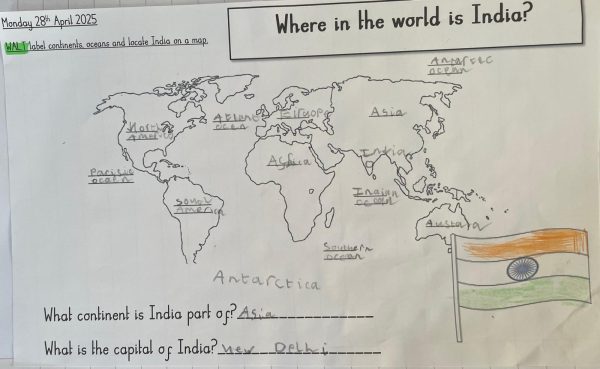 Monday 28th April 2025
Where in the world is India?
WALT label continents, oceans and locate India on a map.
Antarctic
ocean
North
America
Atlantic
ocean
Europe
Asia
Africa
India
Pacific
ocean
South
America
Indian
ocean
Southern
ocean
Antarctica
What continent is India part of? Asia
What is the capital of India? New Delhi